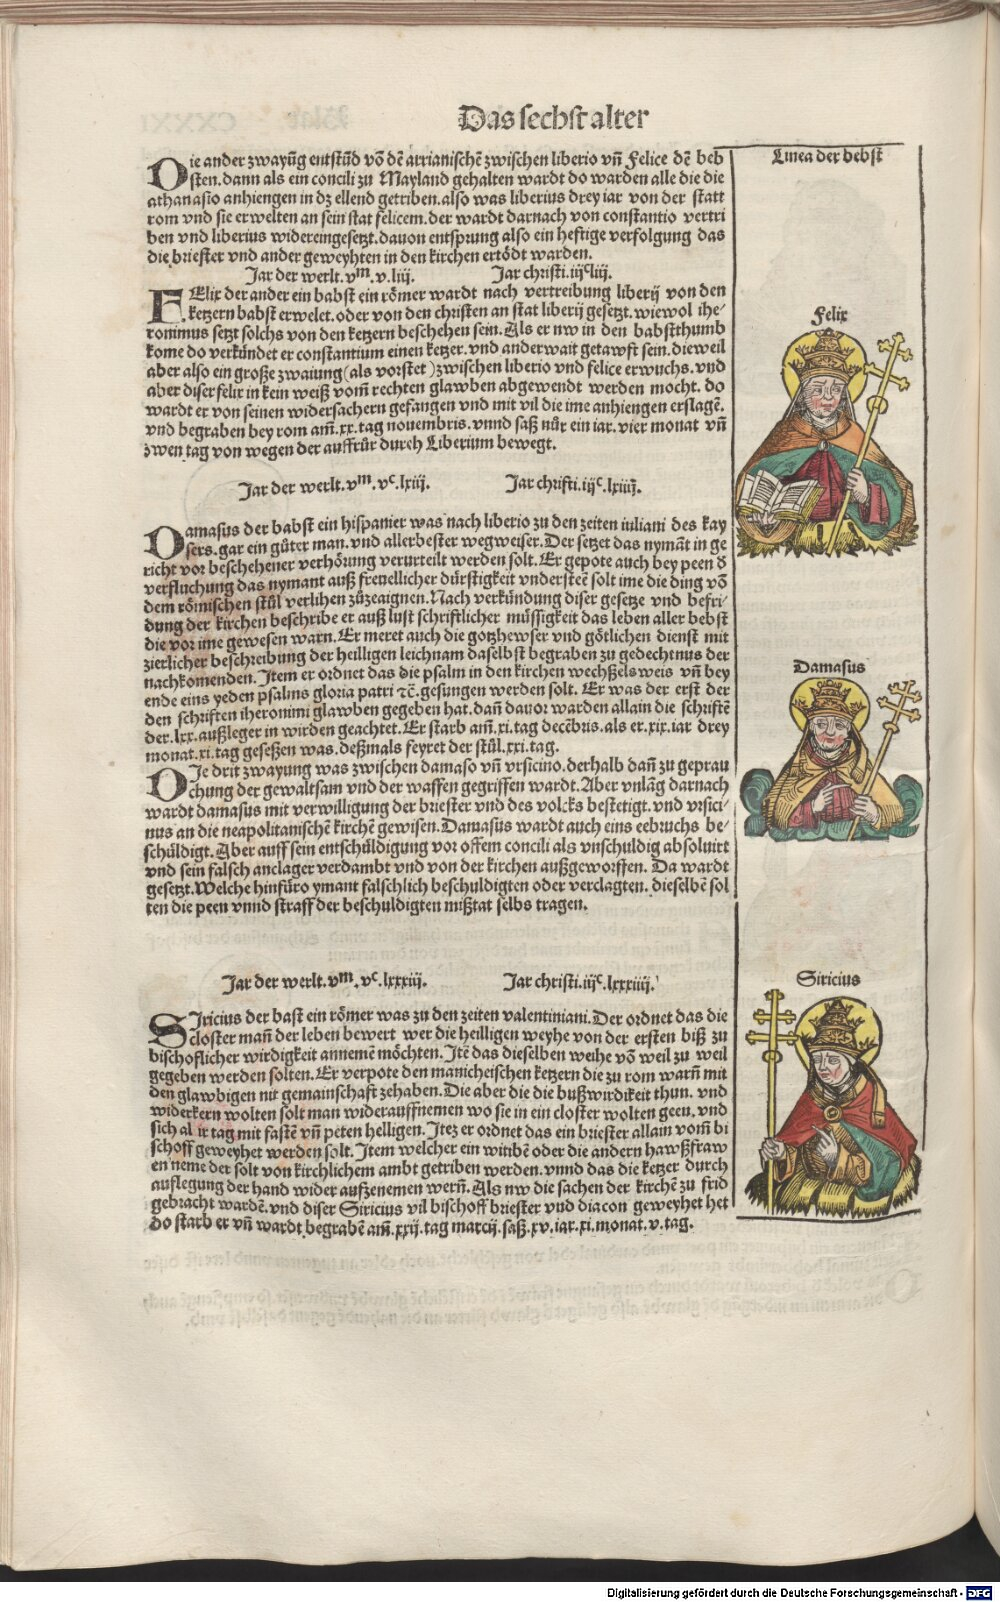 Das sechst alter
Linea der bebst
Die ander zwayũg entstũd võ dẽ arrianischẽ zwischen liberio vñ Felice dẽ beb
sten. dann als ein concili zu Mayland gehalten wardt do warden alle die die
athanasio anhiengen in dz ellend getriben. also was liberius drey iar von der statt
rom vnd sie erwelten an sein stat felicem. der wardt darnach von constantio vertri
ben vnd liberius widereingesetzt. dauon entsprung also ein heftige verfolgung das
die briester vnd ander geweyhten in den kirchen ertödt warden.
Jar der werlt. vᵐ. v. liij. Jar christi. iijᶜ liij.
FElix der ander ein babst ein römer wardt nach vertreibung liberij von den
ketzern babst erwelet. oder von den christen an stat liberij gesetzt. wiewol ihe-
ronimus setzt solchs von den ketzern beschehen sein. Als er nw in den babstthumb
kome do verkündet er constantium einen ketzer. vnd anderwait getawft sein. dieweil
aber also ein große zwaiung (als vorstet) zwischen liberio vnd felice erwuchs. vnd
aber diser felix in kein weiß vom̃ rechten glawben abgewendt werden mocht. do
wardt er von seinen widersachern gefangen vnd mit vil die ime anhiengen erslagẽ.
vnd begraben bey rom am̃. xx. tag nouembris. vnnd saß nůr ein iar. vier monat vñ
zwen tag von wegen der auffrůr durch Liberium bewegt.
Felix
Jar der werlt. vᵐ. vᶜ. lxiij. Jar christi. iijᶜ. lxiiij.
Damasus der babst ein hispanier was nach liberio zu den zeiten iuliani des kay
sers. gar ein gůter man. vnd allerbester wegweiser. Der setzet das nymãt in ge
richt vor beschehener verhörung verurteilt werden solt. Er gepote auch bey peen d̃
verfluchung das nymant auß freuellicher dürstigkeit vndersteẽ solt ime die ding võ
dem römischen stůl verlihen zůzeaignen. Nach verkündung diser gesetze vnd befri-
dung der kirchen beschribe er auß lust schriftlicher müssigkeit das leben aller bebst
die vor ime gewesen warn. Er meret auch die gotzhewser vnd götlichen dienst mit
zierlicher beschreibung der heilligen leichnam daselbst begraben zu gedechtnus der
nachkomenden. Item er ordnet das die psalm in den kirchen wechßelsweis vñ bey
ende eins yeden psalms gloria patri ⁊c̃. gesungen werden solt. Er was der erst der
den schriften iheronimi glawben gegeben hat. dañ dauor warden allain die schriftẽ
der. lxx. außleger in wirden geachtet. Er starb am̃. xi. tag decẽbris. als er. xix. iar drey
monat. xi. tag geseßen was. deßmals feyret der stůl. xxi. tag.
Damasus
DJe drit zwayung was zwischen damaso vñ vrsicino. derhalb dañ zu geprau
chung der gewaltsam vnd der waffen gegriffen wardt. Aber vnlãg darnach
wardt damasus mit verwilligung der briester vnd des volcks bestetigt. vnd vrsici-
nus an die neapolitanischẽ kirchẽ gewisen. Damasus wardt auch eins eebruchs be-
schüldigt. Aber auff sein entschüldigung vor offem concili als vnschuldig absoluirt
vnd sein falsch anclager verdambt vnd von der kirchen außgeworffen. Da wardt
gesetzt. Welche hinfüro ymant falschlich beschuldigten oder verclagten. dieselbẽ sol
ten die peen vnnd straff der beschuldigten mißtat selbs tragen.
Jar der werlt. vᵐ. vᶜ. lxxxiij. Jar christi. iijᶜ. lxxxiiij.
SJricius der bast ein römer was zu den zeiten valentiniani. Der ordnet das die
closter mañ der leben bewert wer die heilligen weyhe von der ersten biß zu
bischoflicher wirdigkeit annemẽ möchten. Jtẽ das dieselben weihe võ weil zu weil
gegeben werden solten. Er verpote den manicheischen ketzern die zu rom warñ mit
den glawbigen nit gemainschaft zehaben. Die aber die die bußwirdikeit thun. vnd
widerkern wolten solt man widerauffnemen wo sie in ein closter wolten geen. vnd
sich al ir tag mit fastẽ vñ peten helligen. Jtez er ordnet das ein briester allain vom̃ bi
schoff geweyhet werden solt. Jtem welcher ein witibẽ oder die andern hawßfraw
en neme der solt von kirchlichem ambt getriben werden. vnnd das die ketzer durch
auflegung der hand wider aufzenemen werñ. Als nw die sachen der kirchẽ zu frid
gebracht wardẽ. vnd diser Siricius vil bischoff briester vnd diacon geweyhet het
do starb er vñ wardt begrabẽ am̃. xxij. tag marcij. saß. xv. iar. xi. monat. v. tag.
Siricius
Digitalisierung gefördert durch die Deutsche Forschungsgemeinschaft - DFG